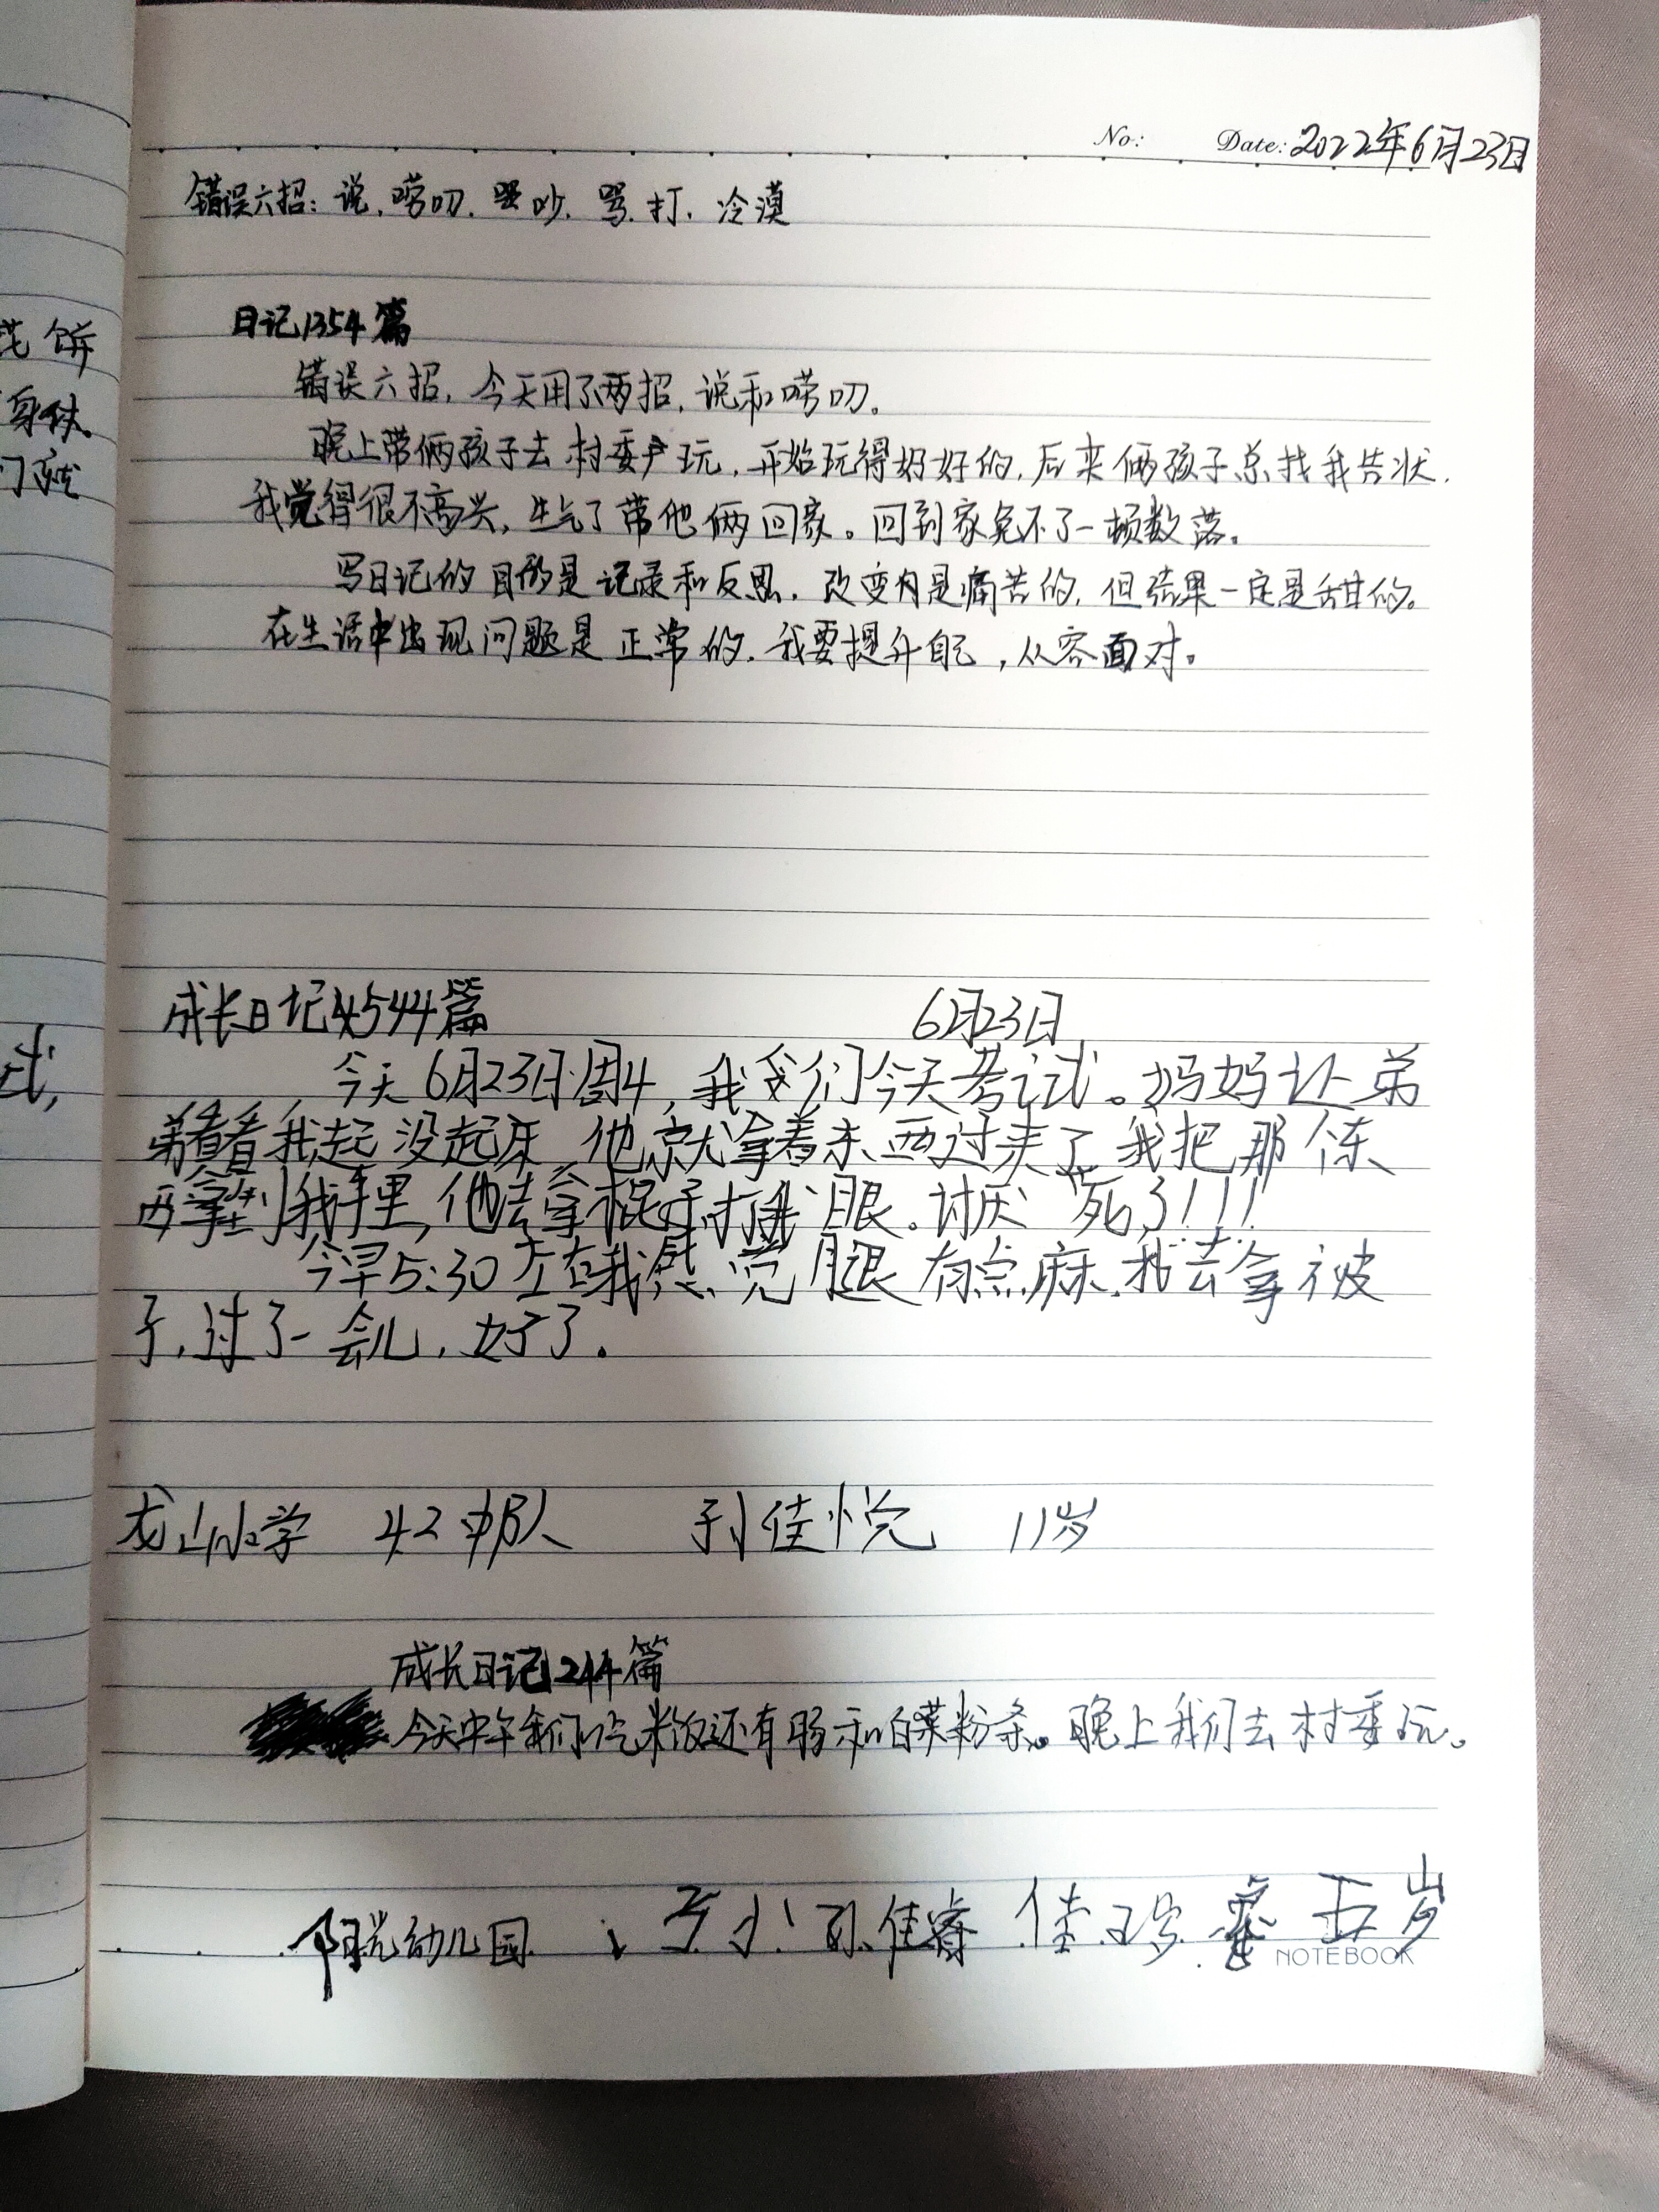 No: Date: 2022年6月23日
错误六招:说,唠叨,吵,骂,打,冷漠
花饼
日记1354篇
身体。
错误六招,今天用了两招,说和唠叨。
晚上带俩孩子去村委玩,开始玩得好好的,后来俩孩子总找我告状,
我觉得很不高兴,生气了带他俩回家。回到家免不了一顿数落。
写日记的目的是记录和反思,改变是痛苦的,但结果一定是甜的。
在生活中出现问题是正常的,我要提升自己,从容面对。
成长日记4544篇 6月23日
今天6月23日周4,我们今天考试。妈妈让弟
弟看看我起没起床,他就拿着东西过来了,我把那个东
西拿到我手里,他去拿棍子打我眼。讨厌死了!!!
今早5:30左右我感觉腿有点麻,我去拿被
子,过了一会儿,好了。
龙山小学 42中队 孙佳悦 11岁
成长日记1244篇
今天中午我们吃米饭还有肠和白菜粉条。晚上我们去村委玩。
阳光幼儿园 孙佳睿 佳 五岁
NOTEBOOK